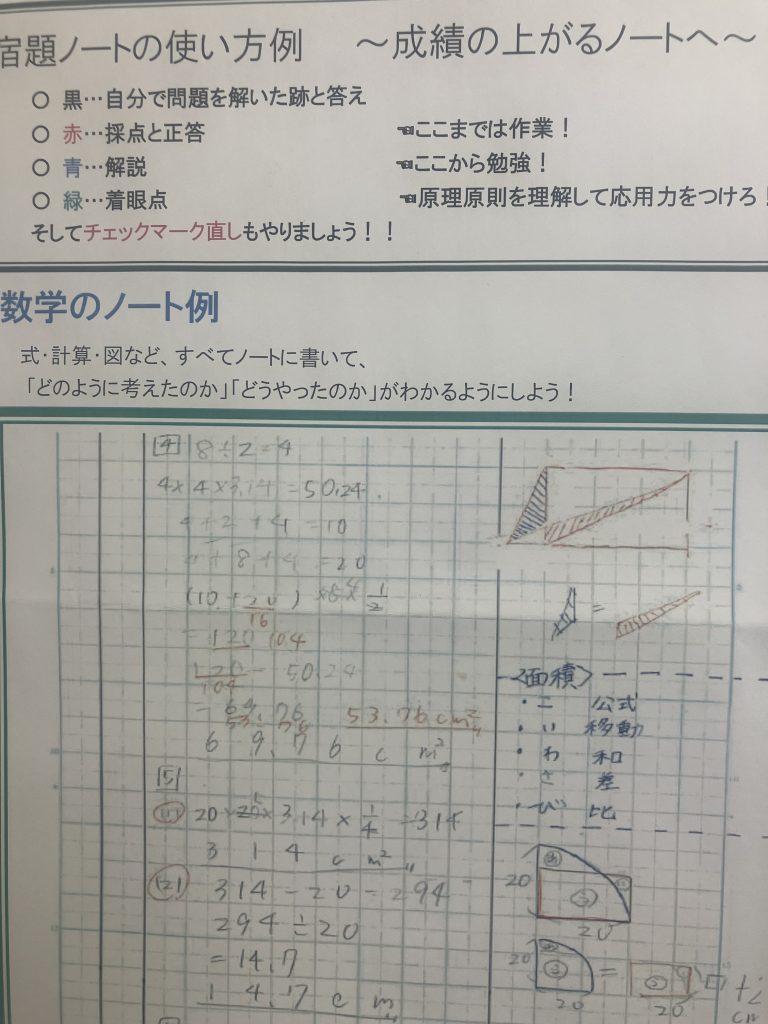 宿題ノートの使い方例 ～成績の上がるノートへ～
○ 黒…自分で問題を解いた跡と答え
○ 赤…採点と正答 ☚ここまでは作業！
○ 青…解説 ☚ここから勉強！
○ 緑…着眼点 ☚原理原則を理解して応用力をつけろ！
そしてチェックマーク直しもやりましょう！！
数学のノート例
式・計算・図など、すべてノートに書いて、
「どのように考えたのか」「どうやったのか」がわかるようにしよう！
[4] 8÷2=4
4×4×3.14=50.24
4+2+4=10
4+8+4=20
(10+20) 1/2
16
=120 104
120-50.24
104
=69.76 53.76cm²
53.76
69.76cm²
[5]
(1) 20× 3.14×1/4=314
314cm²
(2) 314-20=294
294÷20
=14.7
14.7cm
=
<面積>
・こ 公式
・い 移動
・わ 和
・さ 差
・び 比
20
20
20
20
=
20